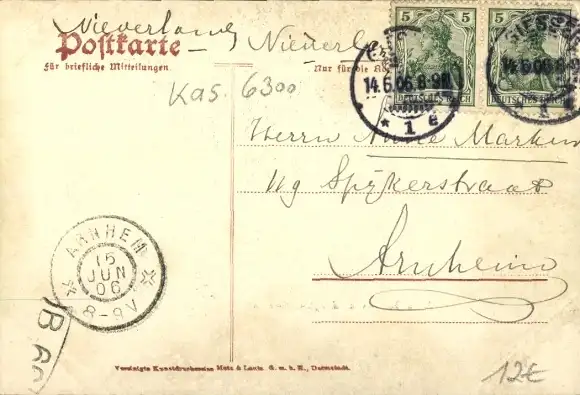 Nieverland
Postkarte
für briefliche Mitteilungen.
Nur für die
Kas. 6300
5 5
DEUTSCHES REICH DEUTSCHES REICH
GIESSEN
14.6.06.8-9N
* 1 e
Herrn
Spijkerstraat
Arnheim
ARNHEM
15
JUN
06
8-9V
Vereinigte Kunstdruckereien Metz & Lautz G. m. b. H., Darmstadt.
12€